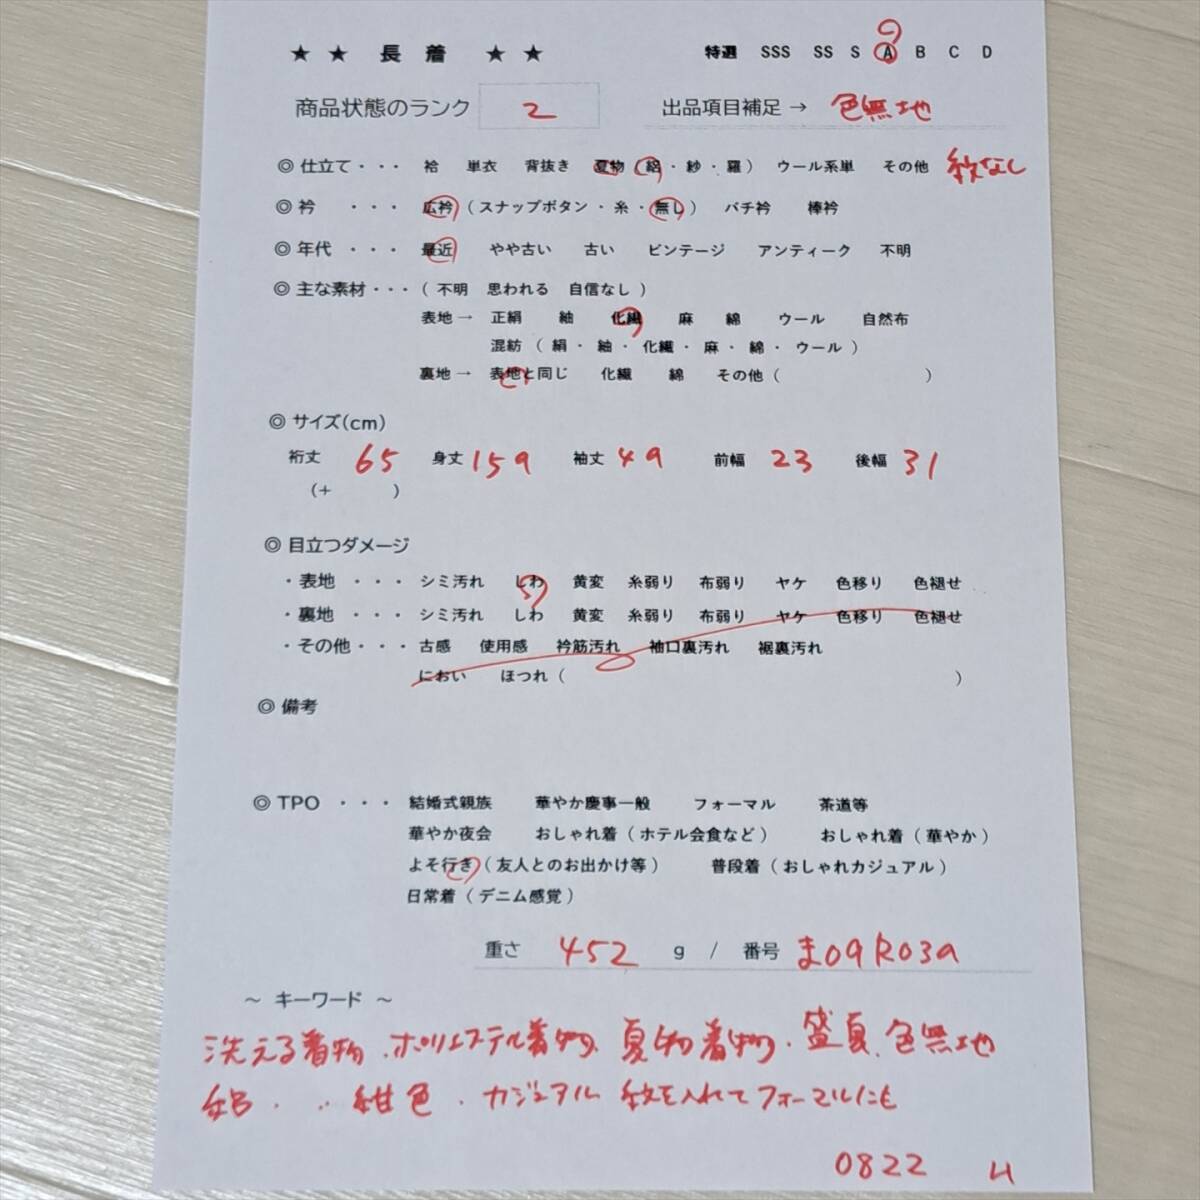 ★ ★ 長 着 ★ ★ 特選 SSS SS S A B C D
商品状態のランク 2 出品項目補足 → 色無地
◎ 仕立て ・・・ 袷 単衣 背抜き 夏物 (絽 ・ 紗 ・ 羅) ウール系単 その他 紋なし
◎ 衿 ・・・ 広衿 (スナップボタン ・ 糸 ・ 無し) バチ衿 棒衿
◎ 年代 ・・・ 最近 やや古い 古い ビンテージ アンティーク 不明
◎ 主な素材 ・・・ ( 不明 思われる 自信なし )
表地 → 正絹 紬 化繊 麻 綿 ウール 自然布
混紡 ( 絹 ・ 紬 ・ 化繊 ・ 麻 ・ 綿 ・ ウール )
裏地 → 表地と同じ 化繊 綿 その他 ( )
◎ サイズ(cm)
裄丈 65 身丈 159 袖丈 49 前幅 23 後幅 31
(+ )
◎ 目立つダメージ
・表地 ・・・ シミ汚れ しわ 黄変 糸弱り 布弱り ヤケ 色移り 色褪せ
・裏地 ・・・ シミ汚れ しわ 黄変 糸弱り 布弱り ヤケ 色移り 色褪せ
・その他 ・・・ 古感 使用感 衿筋汚れ 袖口裏汚れ 裾裏汚れ
におい ほつれ ( )
◎ 備考
◎ TPO ・・・ 結婚式親族 華やか慶事一般 フォーマル 茶道等
華やか夜会 おしゃれ着 (ホテル会食など) おしゃれ着 (華やか)
よそ行き (友人とのお出かけ等) 普段着 (おしゃれカジュアル)
日常着 (デニム感覚)
重さ 452 g / 番号 ま09R039
～ キーワード ～
洗える着物、ポリエステル着物、夏物着物、盛夏、色無地
絽 ・ ・・ 紺色 ・ カジュアル 紋を入れてフォーマルにも
0822